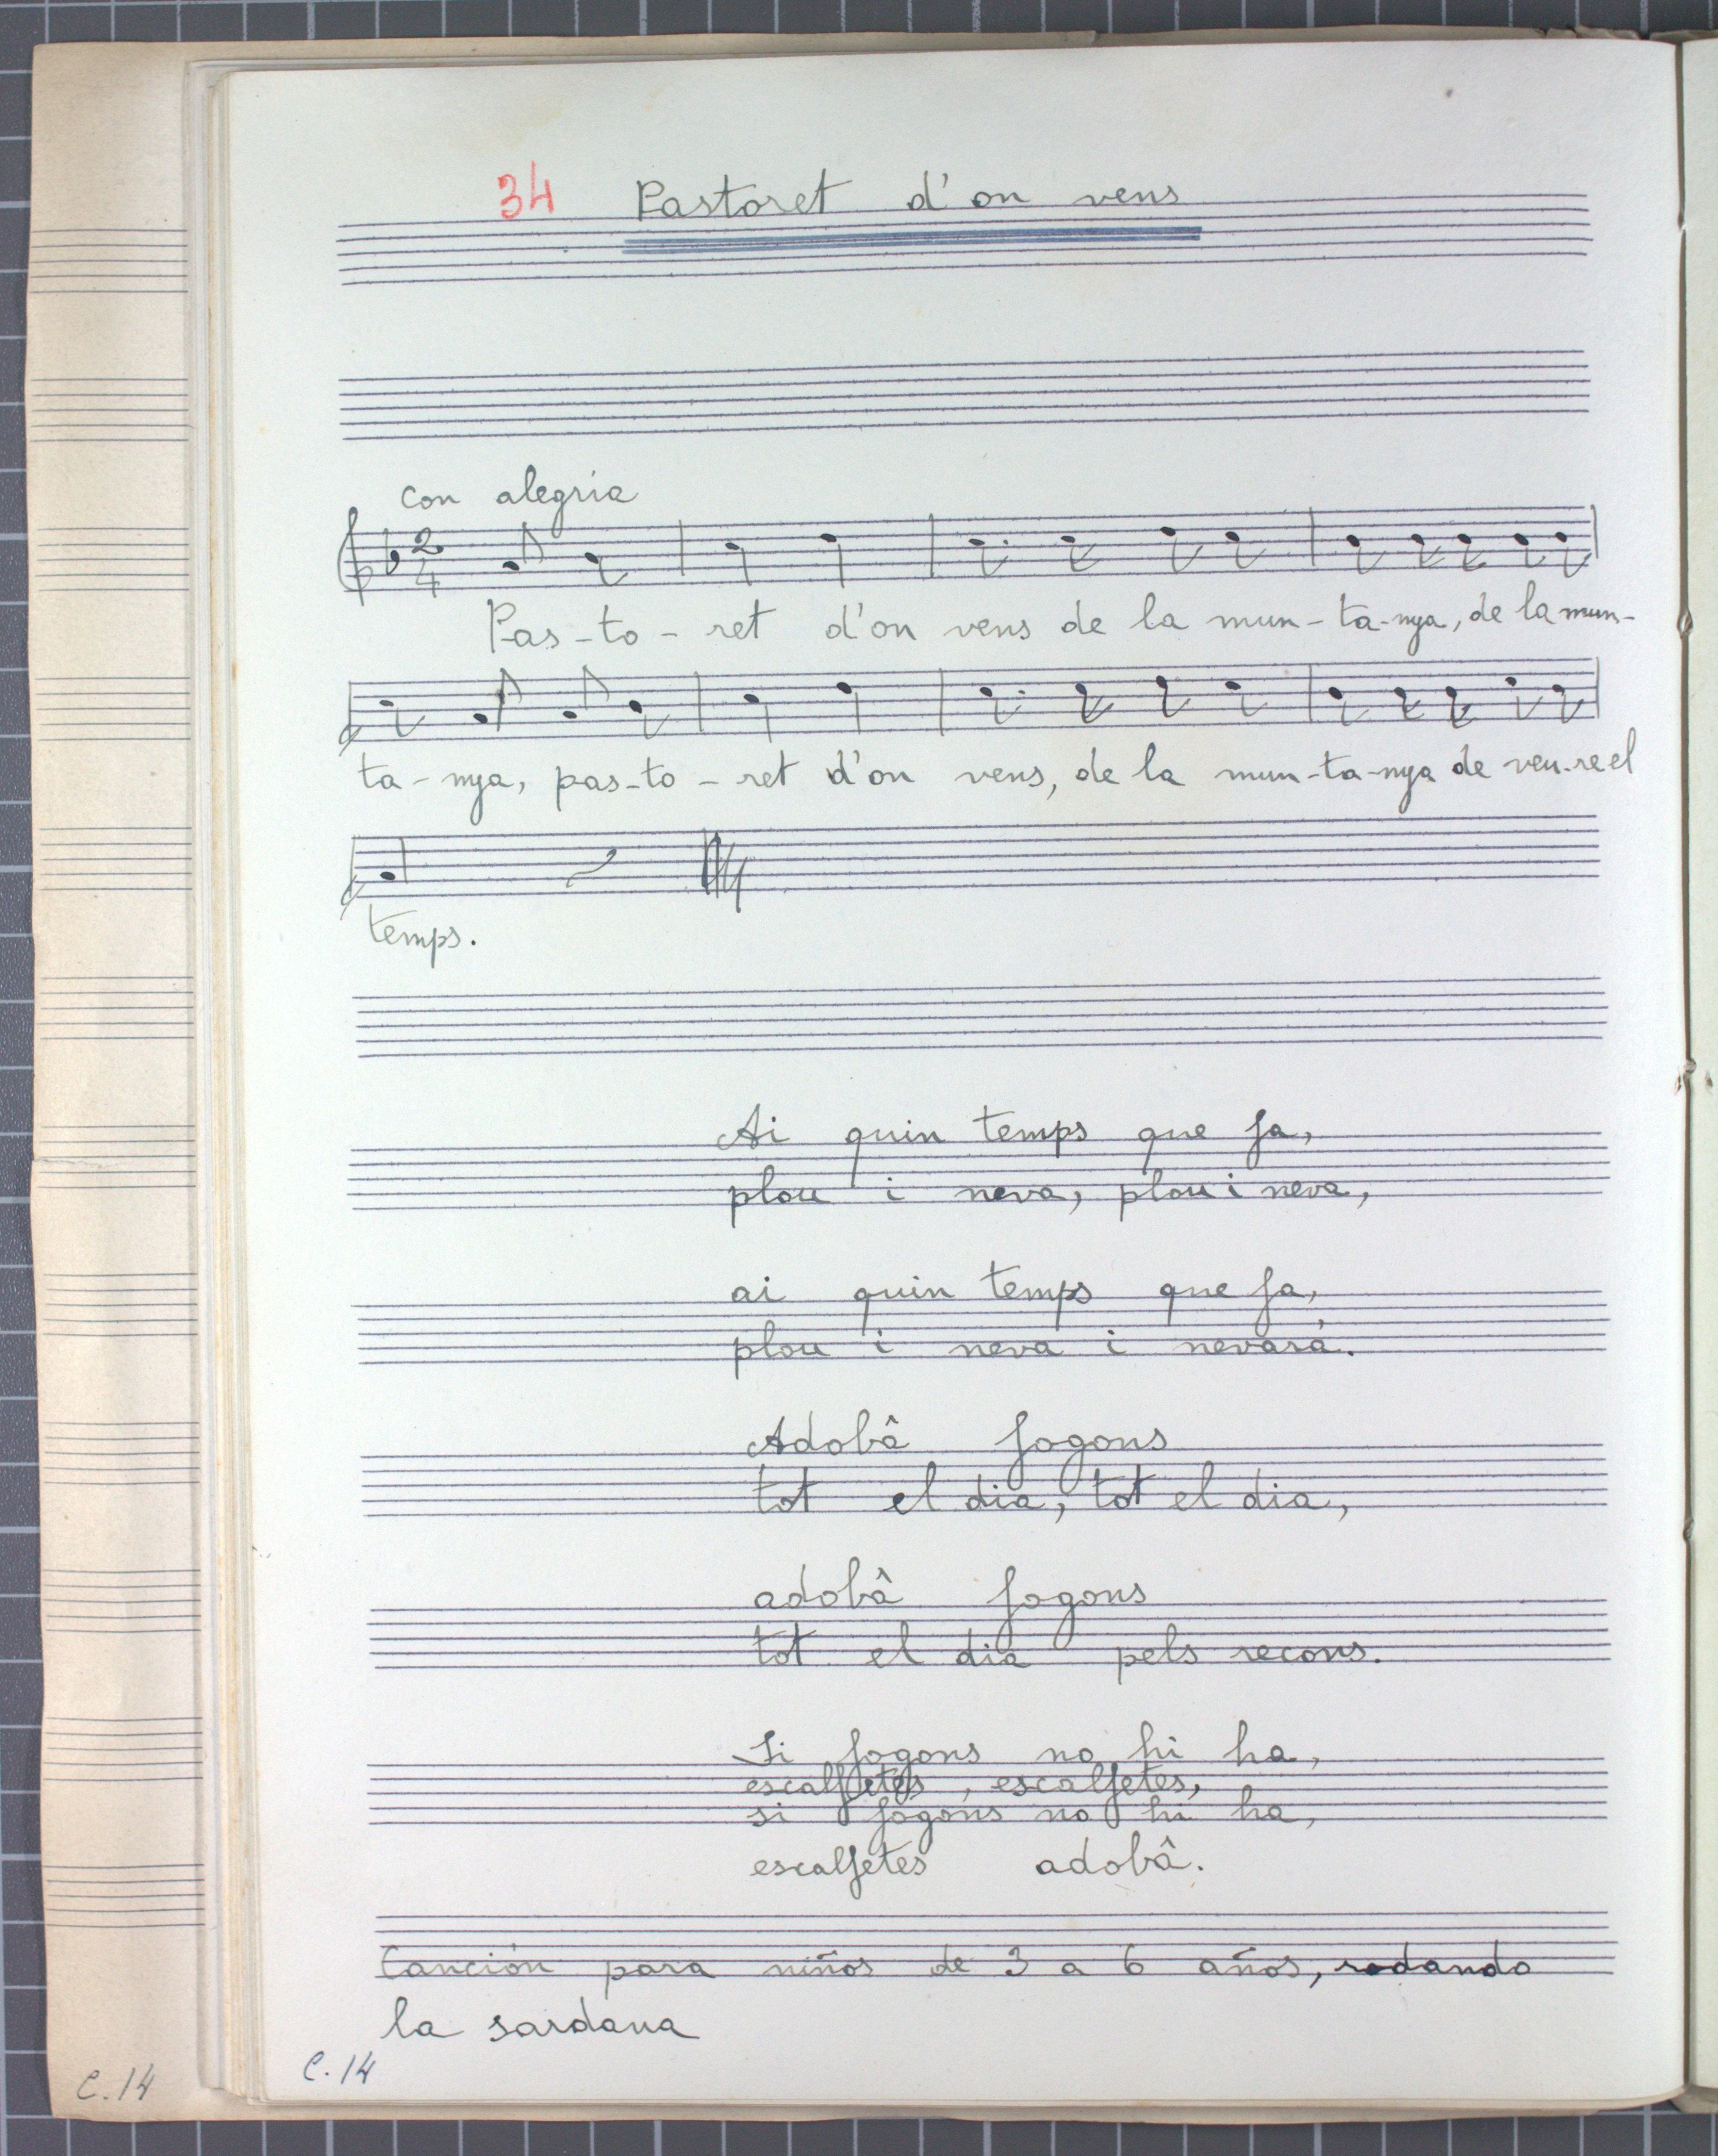 34 Pastoret d'on vens
con alegria
2
4
Pas-to-ret d'on vens de la mun-ta-nya, de la mun-
ta-nya, pas-to-ret d'on vens, de la mun-ta-nya de veu-re el
temps.
Ai quin temps que fa,
plou i neva, plou i neva,
ai quin temps que fa,
plou i neva i nevará.
Adobâ fogons
tot el dia, tot el dia,
adobâ fogons
tot el dia pels recons.
Si fogons no hi ha,
escalfetes, escalfetes,
si fogons no hi ha,
escalfetes adobâ.
Canción para niños de 3 a 6 años, rodando
la sardana
C.14
C.14